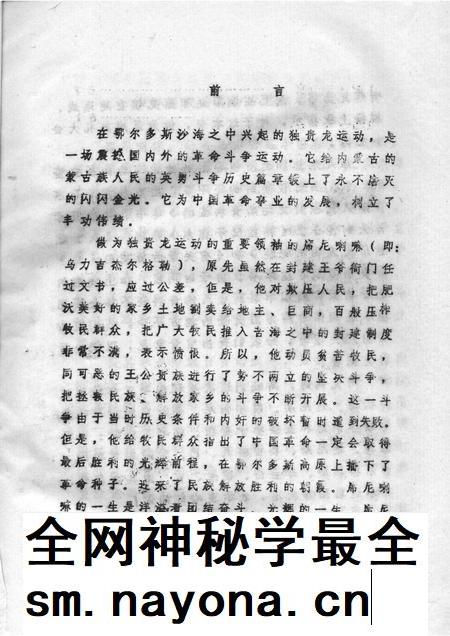 前　言
在鄂尔多斯沙海之中兴起的独贵龙运动，是
一场震撼国内外的革命斗争运动。它给内蒙古的
蒙古族人民的英勇斗争历史篇章镀上了永不磨灭
的闪闪金光。它为中国革命事业的发展，树立了
丰功伟绩。
做为独贵龙运动的重要领袖的席尼喇嘛（即：
乌力吉杰尔格勒），原先虽然在封建王爷衙门任
过文书，应过公差，但是，他对欺压人民，把肥
沃美好的家乡土地剥卖给地主、巨商，百般压榨
牧民群众，把广大牧民推入苦海之中的封建制度
非常不满，表示愤恨。所以，他动员贫苦牧民，
同可恶的王公贵族进行了势不两立的坚决斗争，
把拯救民族、解放家乡的斗争不断开展。这一斗
争由于当时历史条件和内奸的破坏暂时遭到失败。
但是，他给牧民群众指出了中国革命一定会取得
最后胜利的光辉前程，在鄂尔多斯高原上播下了
革命种子。迎来了民族解放胜利的朝霞。席尼喇
嘛的一生是洋溢着团结奋斗、光辉的一生。席尼
全网神秘学最全
sm.nayona.cn